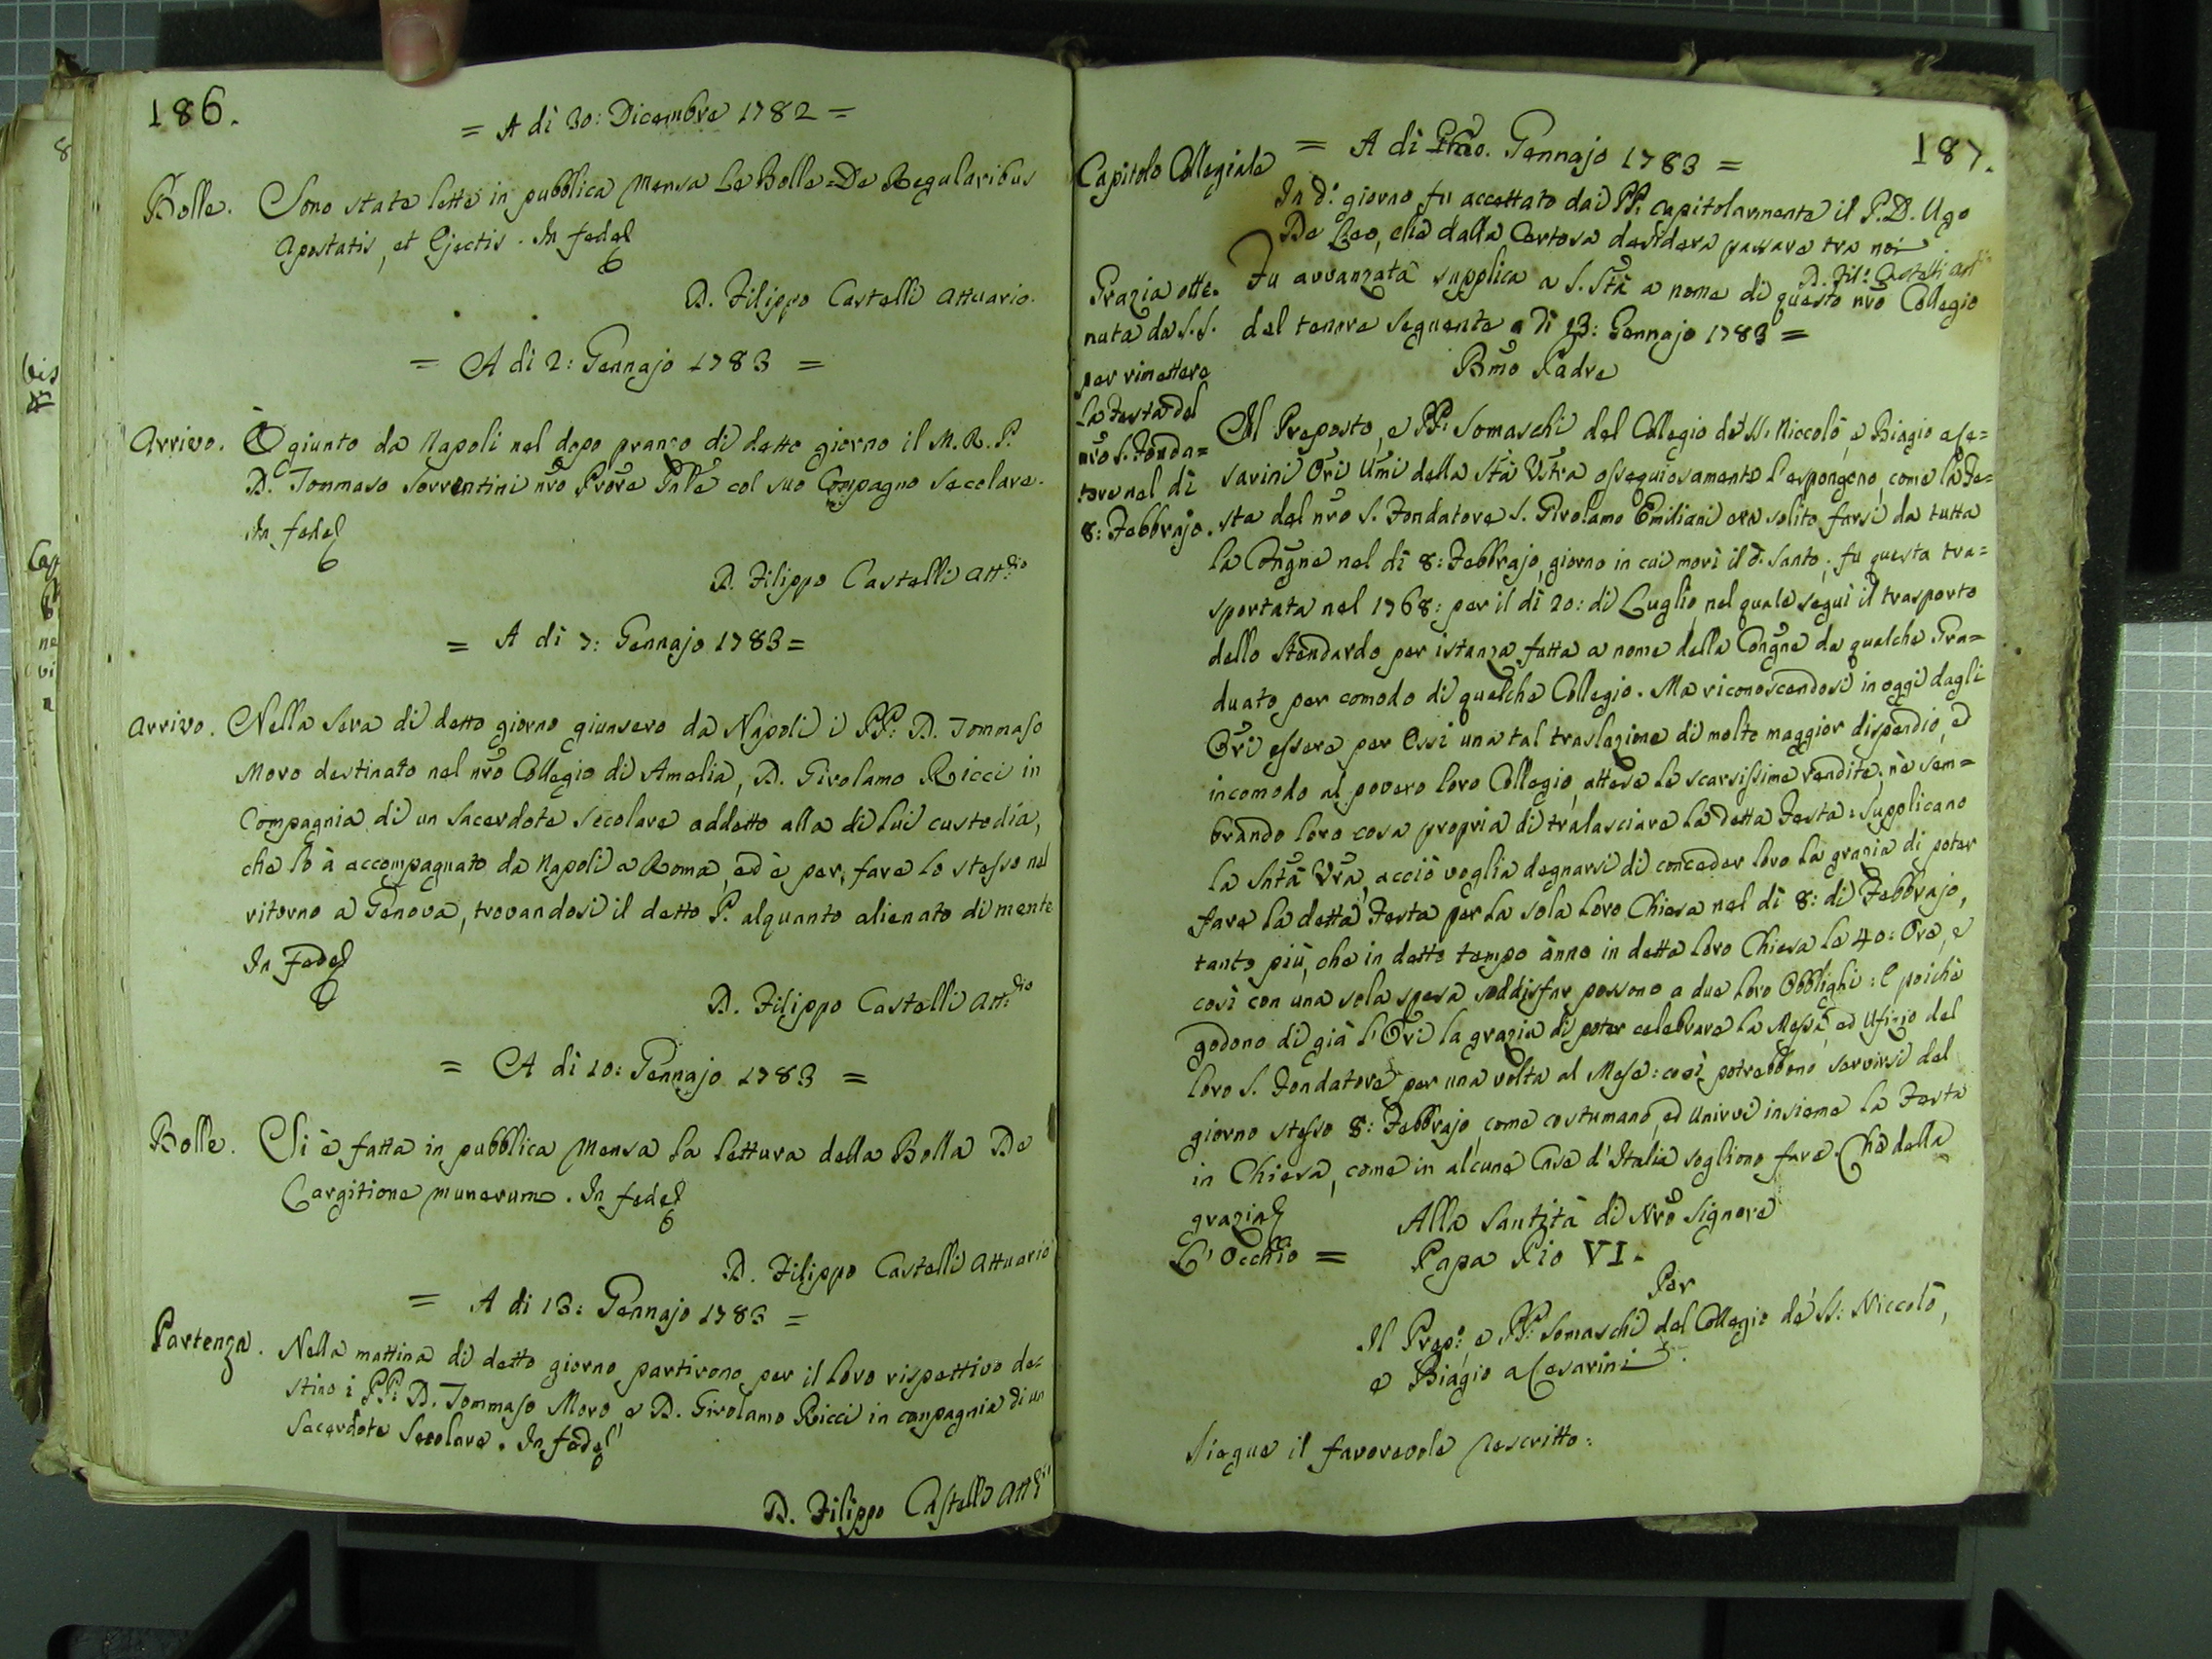 186.
= A di 30: Dicembre 1782 =
Bolle. Sono state lette in pubblica Mensa Le Bolle = De Regularibus
Apostatis, et Ejectis. In fede
D. Filippo Castelli Attuario.
= A di 2: Gennajo 1783 =
Arrivo. È giunto da Napoli nel dopo pranzo di detto giorno il M. R. P.
D. Tommaso Sorrentini nro Prore Prãle col suo Compagno secolare.
In fede
D. Filippo Castelli Att.rio
= A di 7: Gennajo 1783 =
Arrivo. Nella sera di detto giorno giunsero da Napoli i PP: D. Tommaso
Moro destinato nel nro Collegio di Amelia, D. Girolamo Ricci in
Compagnia di un Sacerdote secolare addetto alla di lui custodia,
che lo à accompagnato da Napoli a Roma, ed è per fare lo stesso nel
ritorno a Genova, trovandosi il detto P. alquanto alienato di mente
In fede
D. Filippo Castelli Att.rio
= A di 10: Gennajo 1783 =
Bolle. Si è fatta in pubblica Mensa la lettura della Bolla De
Largitione munerum. In fede
D. Filippo Castelli Attuario
= A di 13: Gennajo 1783 =
Partenza. Nella mattina di detto giorno partirono per il loro rispettivo de=
stino i PP: D. Tommaso Moro, e D. Girolamo Ricci in conpagnia di un
Sacerdote Secolare. In fede
D. Filippo Castelli Att.
187.
= A di Pmo. Gennajo 1783 =
Capitolo Collegiale
In d.o giorno fu accettato dai PP: capitolarmente il P. D. Ugo
De Leo, che dalla Certosa desidera passare tra noi
D. Fil.o Castelli Att.
Grazia otte=
nuta da S.S.
per rimettere
la Festa del
nro S. Fonda=
tore nel dì
8: Febbrajo.
Fu avvanzata supplica a S. Stà a nome di questo nro Collegio
del tenore seguente a dì 13: Gennajo 1783 =
Bmo Padre
Il Preposto, e PP: Somaschi del Collegio de' SS: Niccolò, e Biagio a Ce=
sarini Ori Umi della Stà Vtra ossequiosamente l'espongono, come la Fe=
sta del nro S. Fondatore S. Girolamo Emiliani era solito farsi da tutta
la Congne nel dì 8: Febbrajo, giorno in cui morì il d. Santo; fu questa tra=
sportata nel 1768: per il dì 20: di Luglio, nel quale seguì il trasporto
dello Stendardo per istanza fatta a nome della Congne da qualche Gra=
duato per comodo di qualche Collegio. Ma riconoscendosi in oggi dagli
Ori essere per Essi una tal traslazione di molto maggior dispendio, e
incomodo al povero loro Collegio, attese le scarsissime rendite; nè sem=
brando loro cosa propria di tralasciare la detta Festa: Supplicano
la Sntà Vra, acciò voglia degnarsi di conceder loro la grazia di poter
fare la detta Festa per la sola loro Chiesa nel dì 8: di Febbrajo,
tanto più, che in detto tempo ànno in detta loro Chiesa le 40: Ore, e
così con una sola spesa soddisfar possono a due loro Obblighi: E poichè
godono di già l'Ori la grazia di poter celebrare la Messa, ed Ufizio del
loro S. Fondatore per una volta al Mese: così potrebbono servirsi del
giorno stesso 8: Febbrajo, come costumano, ed unirvi insieme la Festa
in Chiesa, come in alcune Case d'Italia sogliono fare. Che della
grazia
L'Occhio =
Alla Santità di Nro Signore
Papa Pio VI.
Per
Il Prep.o e PP: Somaschi del Collegio de' SS: Niccolò,
e Biagio a Cesarini.
Siegue il favorevole Rescritto: